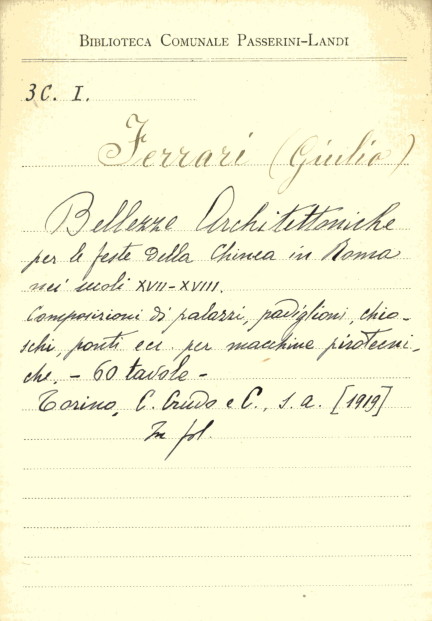 BIBLIOTECA COMUNALE PASSERINI-LANDI
3C. I.
Ferrari (Giulio)
Bellezze Architettoniche
per le feste della Chinea in Roma
nei secoli XVII-XVIII.
Composizioni di palazzi, padiglioni, chio-
schi, ponti ecc. per macchine pirotecni-
che. - 60 tavole -
Torino, C. Crudo e C., s. a. [1919]
In fol.